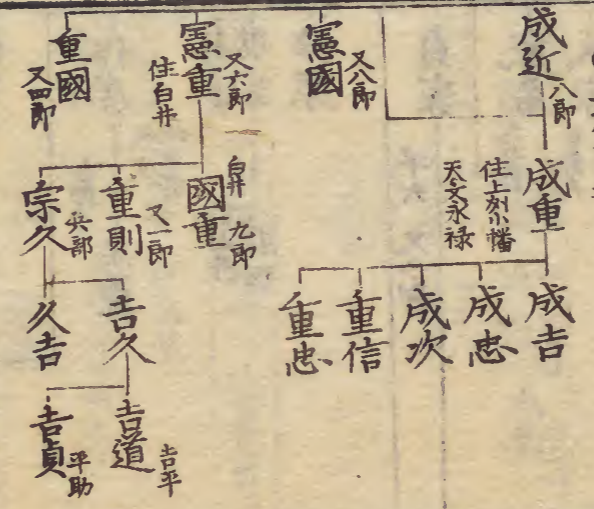 成近 八郎
成重 住上州小幡 天文永禄
成吉
成忠
成次
重信
重忠
憲國 又八郎
憲重 又六郎 住白井
國重 白井 九郎
重則 又一郎
宗久 兵部
吉久
久吉
吉道 吉平
吉貞 平助
重國 又四郎